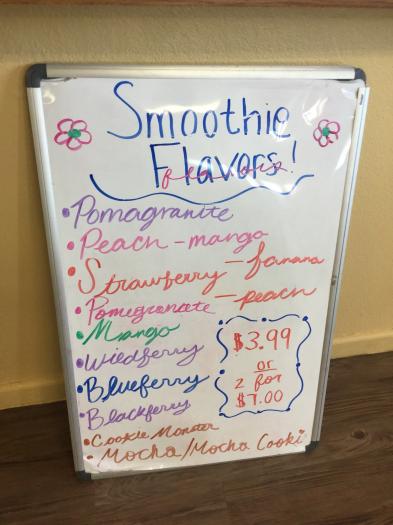 Smoothie
Flavors!
• Pomagranite
• Peach - mango
• Strawberry - banana
• Pomegranate - peach
• Mango
• Wildberry
• Blueberry
• Blackberry
• Cookie Monster
• Mocha/Mocha Cooki
$3.99
or
2 for
$7.00